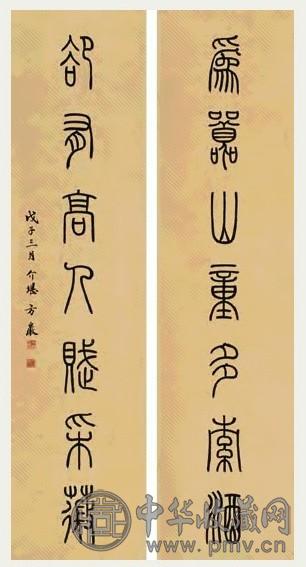 為囂山童多索酒
卻高人賤采薇
戊子三月 介堪方巖
中华收藏网
www.pmv.cn